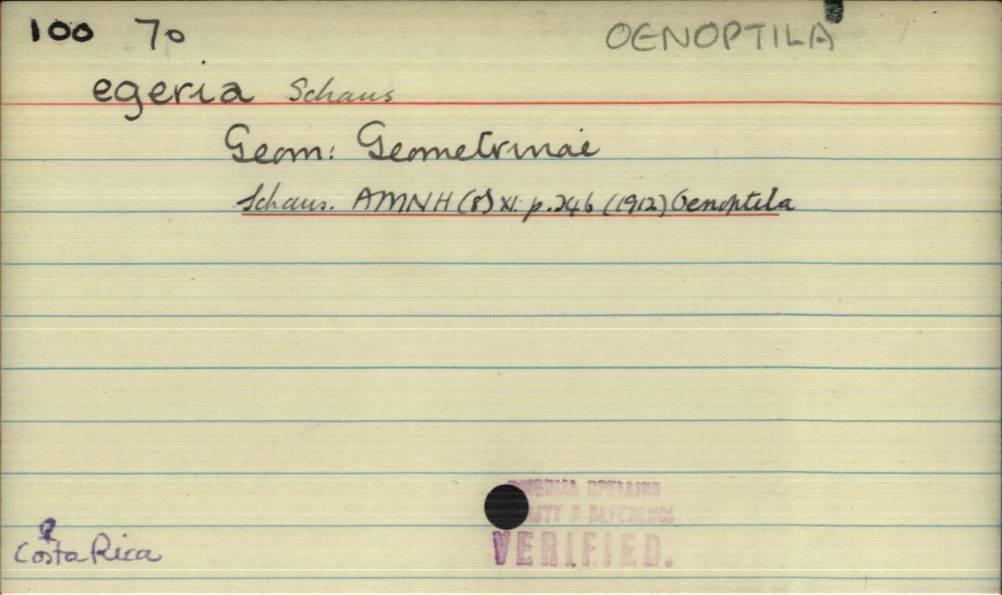 100 70 OENOPTILA
egeria Schaus
Geom: Geometrinae
Schaus. AMNH (8) XI. p.246 (1912) Oenoptila
ORIGINAL SPELLING
& REFERENCE
VERIFIED.
♀
Costa Rica